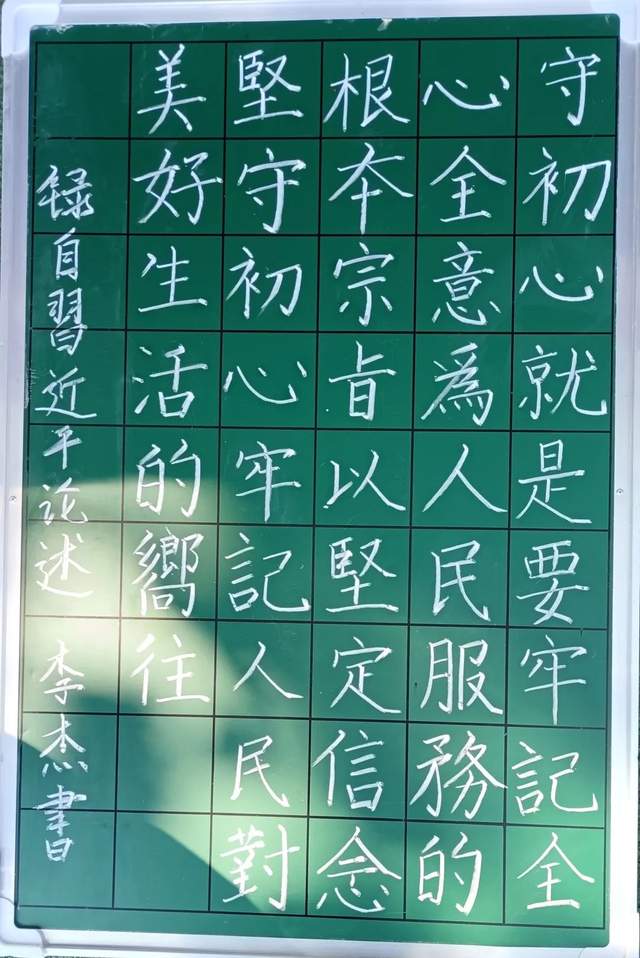 守初心就是要牢記全
心全意爲人民服務的
根本宗旨以堅定信念
堅守初心牢記人民對
美好生活的嚮往
録自習近平论述 李杰書